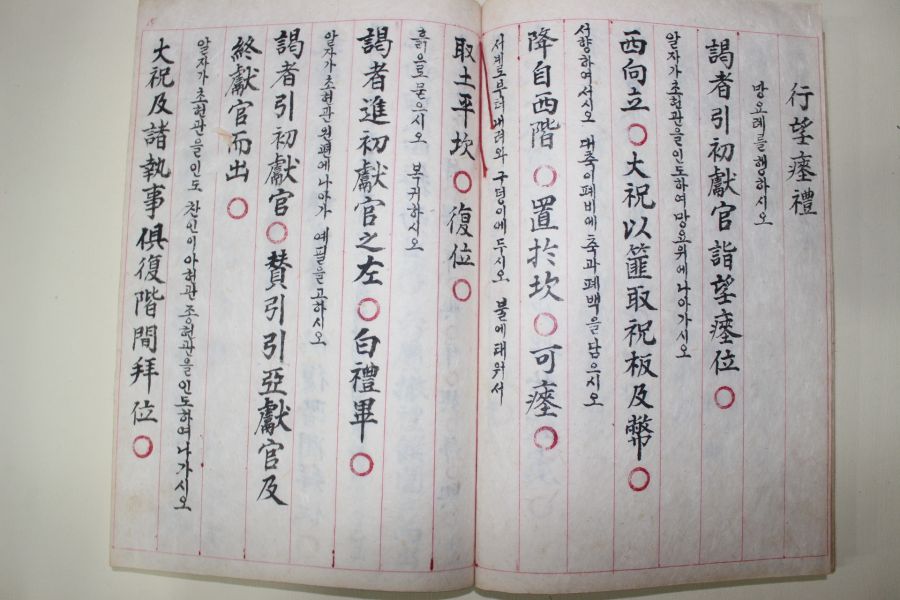 行望瘞禮
망요례를행하시오
謁者引初獻官詣望瘞位○
알자가초헌관을인도하여망요위에나아가시오
西向立○大祝以篚取祝板及幣○
서향하여서시오 대축이폐비에축과폐백을담으시오
降自西階○置於坎○可瘞○
서계로부터내려와구덩이에두시오 불에태워서
取土平坎○復位○
흙으로묻으시오 복귀하시오
謁者進初獻官之左○白禮畢○
알자가초헌관왼편에나아가 예필을고하시오
謁者引初獻官○賛引引亞獻官及
終獻官而出○
알자가초헌관을인도 찬인이아헌관종헌관을인도하여나가시오
大祝及諸執事俱復階間拜位○